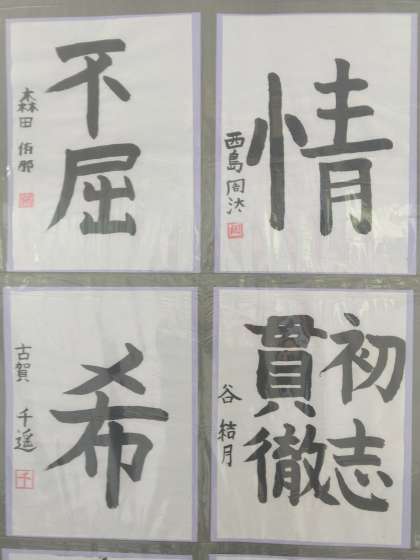 不屈
森田
情
西島周
希
古賀千遥
初志
貫徹
谷 結月